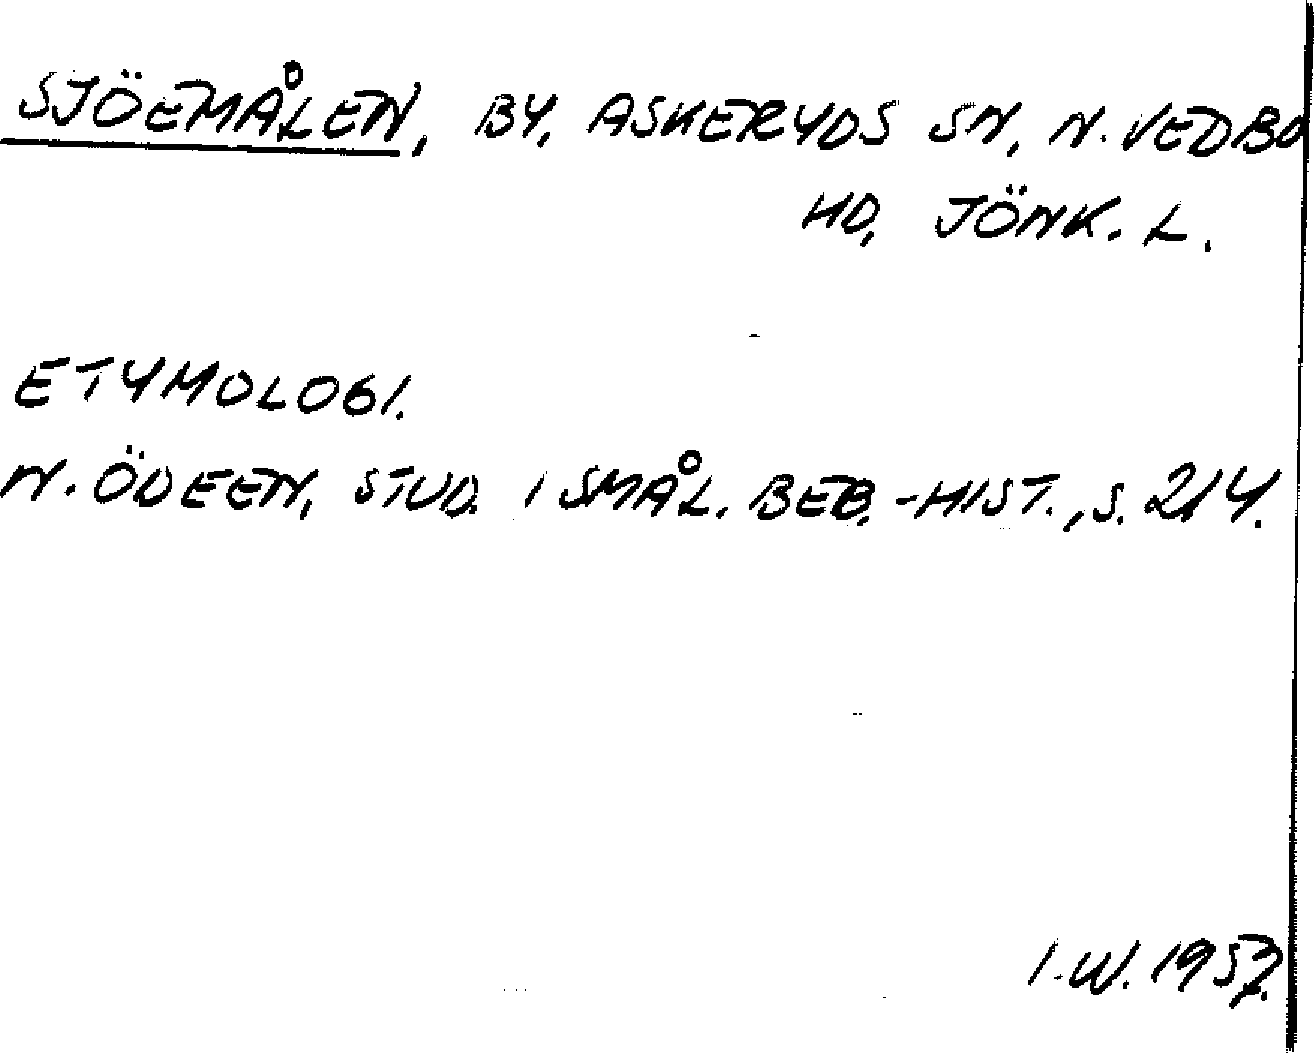 SJÖEMÅLEN, BY, ASKERYDS SN, N. VEDBO
HD, JÖNK. L.
ETYMOLOGI.
N. ÖDEEN, STUD. I SMÅL. BEB.-HIST., S. 214.
I.W. 1957.